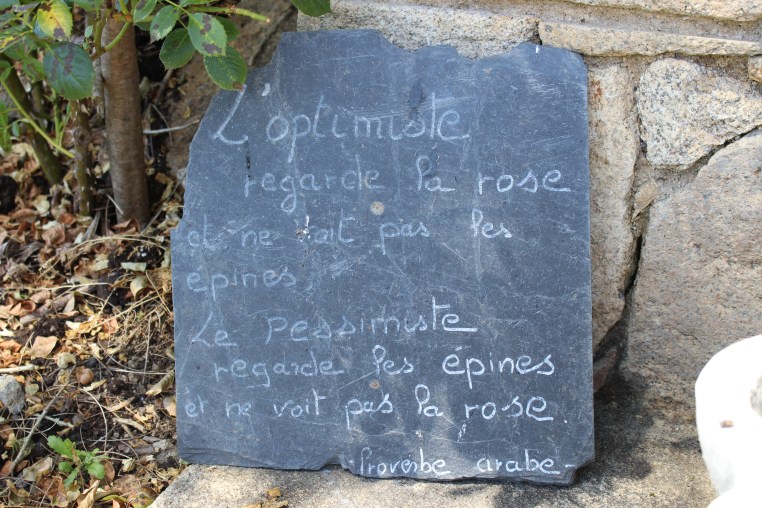 L'optimiste
regarde la rose
et ne voit pas les
épines,
Le pessimiste
regarde les épines
et ne voit pas la rose.
Proverbe arabe-